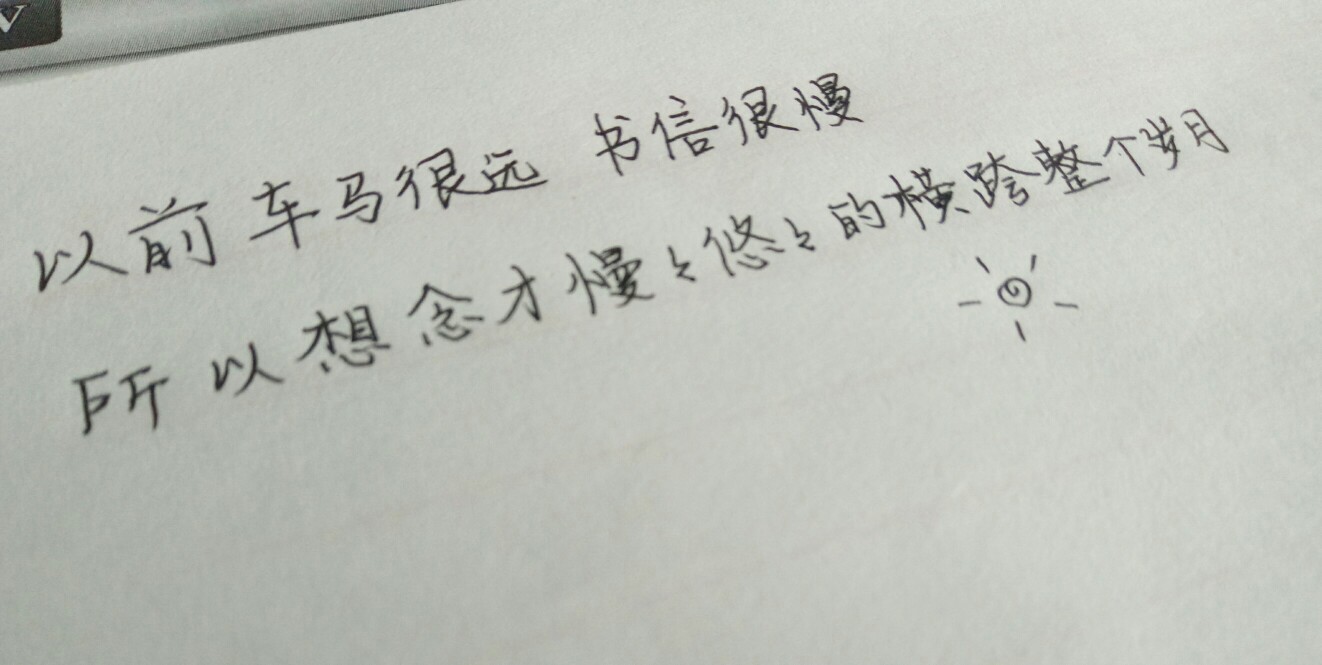 V
以前车马很远 书信很慢
所以想念才慢々悠々的横跨整个岁月